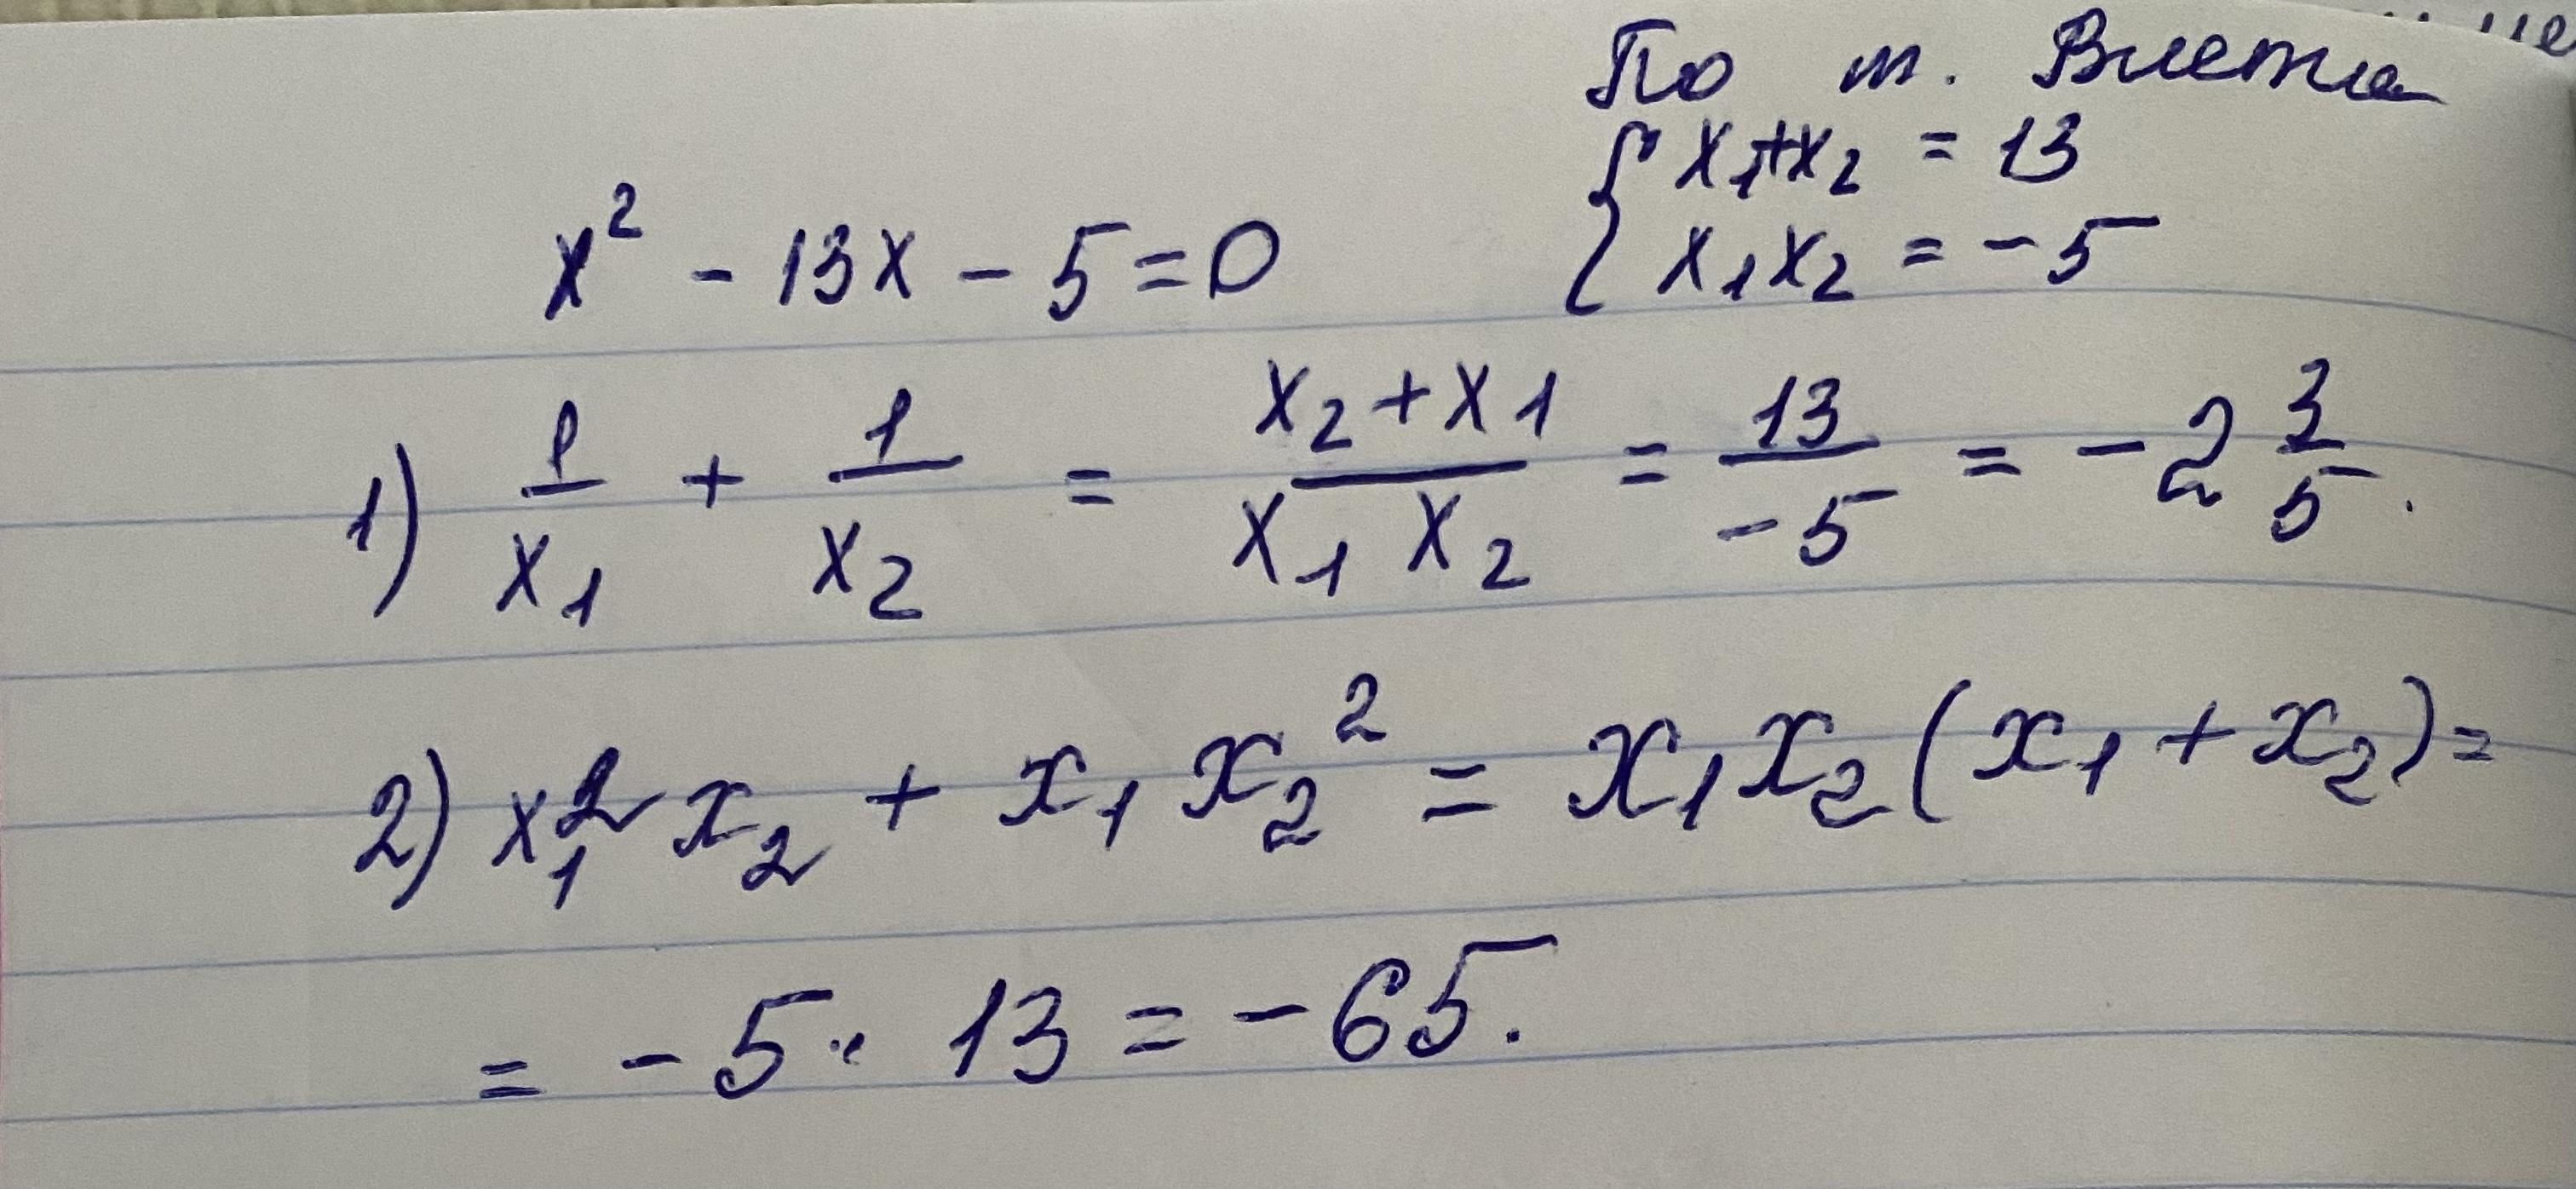 По т. Виета
{x₁+x₂ = 13
{x₁x₂ = -5
x² - 13x - 5 = 0
1) 1/x₁ + 1/x₂ = (x₂+x₁)/(x₁ x₂) = 13/-5 = -2 3/5.
2) x₁²x₂ + x₁x₂² = x₁x₂(x₁+x₂)=
= -5 · 13 = -65.